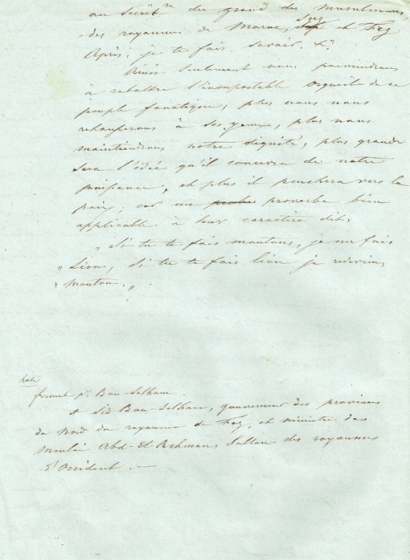 au secrét^re du grand des Musulmans
des royaumes de Maroc, Sus et Fez
Après, je te fais savoir. &^a
Ainsi seulement nous parviendrons
à rabattre l'insupportable orgueil de ce
peuple fanatique, plus nous nous
rehausserons à ses yeux, plus nous
maintiendrons notre dignité, plus grande
sera l'idée qu'il concevra de notre
puissance, et plus il penchera vers la
paix, car un proverbe bien
applicable à leur caractère dit,
" Si tu te fais mouton, je me fais
" Lion, si tu te fais lion je reviens
" Mouton. " .
Note
format p^r Bou-Selham
+ Sid Bou-Selham, gouverneur des provinces
du Nord du royaume de Fez, et ministre de
Moulai Abd-El-Rehman, Sultan des royaumes
d'Occident. —